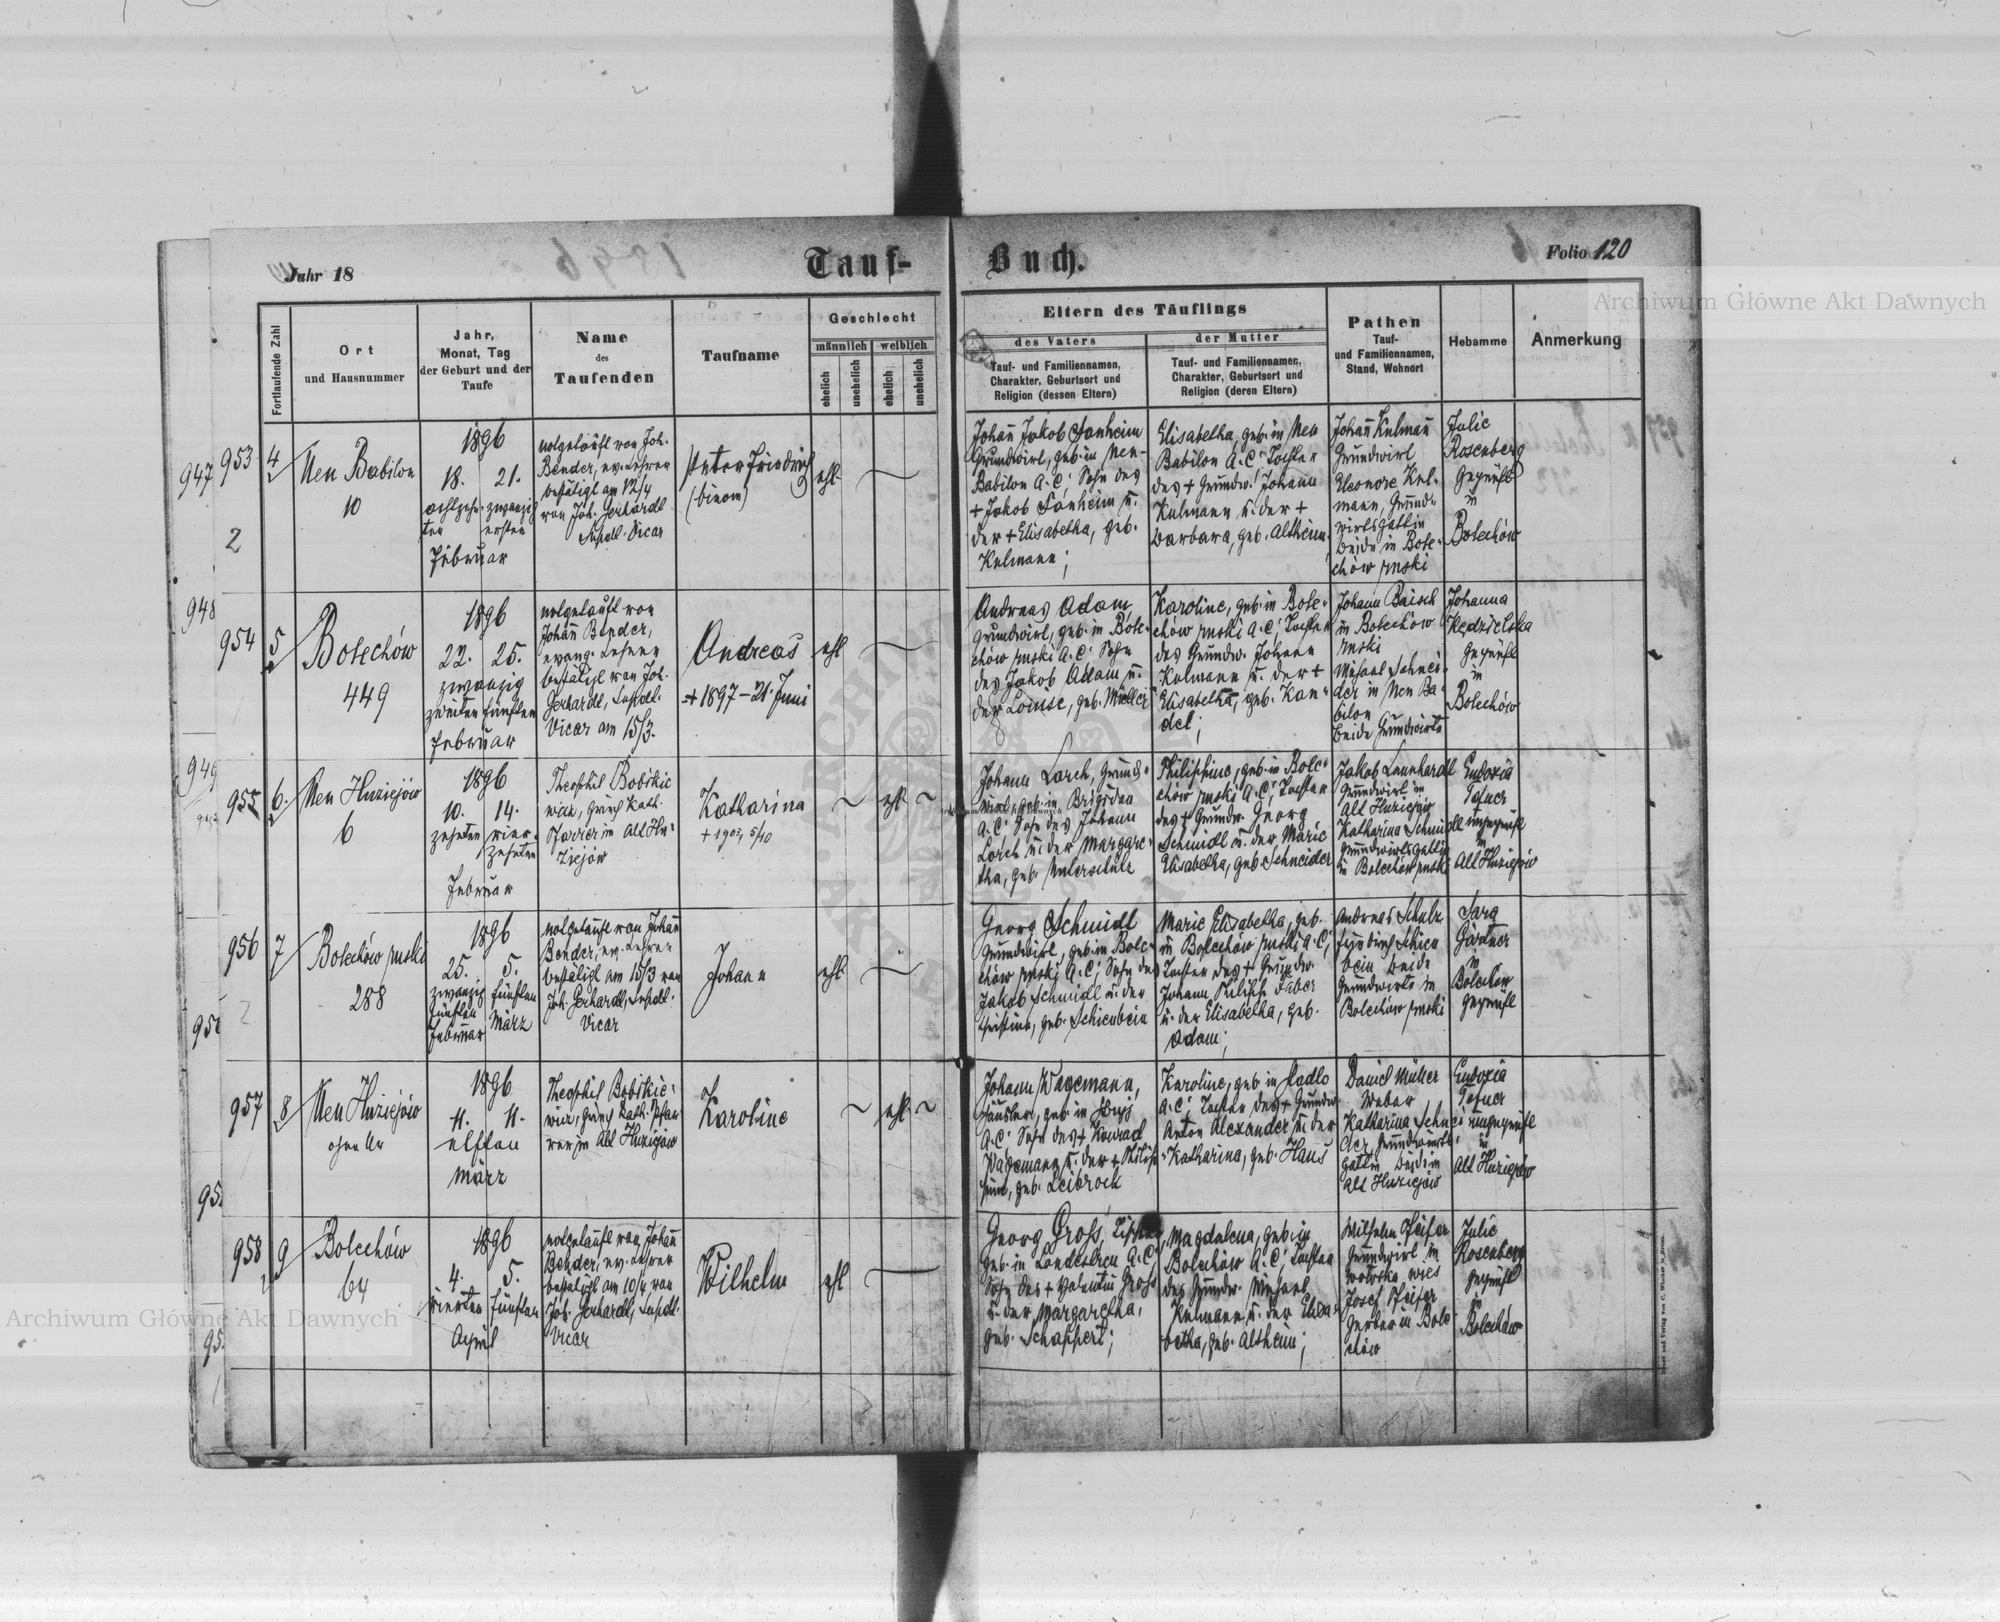 Jahr 18
Tauf-
Buch.
Folio 120
Fortlaufende Zahl
Ort
und Hausnummer
Jahr,
Monat, Tag
der Geburt und der
Taufe
Name
des
Taufenden
Taufname
Geschlecht
männlich
weiblich
ehelich
unehelich
ehelich
unehelich
Eltern des Täuflings
des Vaters
Tauf- und Familiennamen,
Charakter, Geburtsort und
Religion (dessen Eltern)
der Mutter
Tauf- und Familiennamen,
Charakter, Geburtsort und
Religion (deren Eltern)
Pathen
Tauf-
und Familiennamen,
Stand, Wohnort
Hebamme
Anmerkung
947
953
4
2
Neu Babilon
10
1896
18. 21.
achtzehn- zwanzig
ten ersten
Februar
notgetauft von Joh.
Bender, ev. Lehrer
bestätigt am 12/4
von Joh. Gerhardt
Supdl. Vicar
Peter Friedrich
ehl.
Johann Jakob Sanheim
Grundwirt, geb. in Neu-
Babilon A.C; Sohn des
+ Jakob Sanheim u.
der + Elisabetha, geb.
Kulmann;
Elisabetha, geb. in Neu
Babilon A.C; Tochter
des + Grundw. Johann
Kulmann u. der +
Barbara, geb. Altheim
Johann Kulmann
Grundwirt
Eleonore Kul-
mann, Grund-
wirtsgattin
beide in Bole-
chów ruski
Julie
Rosenberg
Geprüft
in
Bolechów
948
954
5
Bolechów
449
1896
22. 25.
zwanzig
zweiten fünften
Februar
notgetauft von
Johann Bender,
evang. Lehrer
bestätigt von Joh.
Gerhardt, Supdl.
Vicar am 15/3.
Andreas
+ 1897 – 21. Juni
ehl
Andreas Adam,
Grundwirt, geb. in Bole-
chów ruski A.C; Sohn
des Jakob Adam u.
der Louise, geb. Müller
Karoline, geb. in Bole-
chów ruski A.C; Tochter
des Grundw. Johann
Kulmann u. der +
Elisabetha, geb. Kan-
del;
Johann Baisch
in Bolechów
ruski
Michael Schnei-
der in Neu Ba-
bilon
beide Grundwirte
Johanna
Kedzielska
Geprüft
in
Bolechów
949
955
6.
Neu Huziejów
6
1896
10. 14.
zehnten vier-
zehnten
Februar
Theophil Bobikie
wicz, griech. kath.
Pfarrer in Alt Hu-
ziejów
Katharina
+ 1903, 5/10
ehl.
Johann Lorch, Grund-
wirt, geb. in Brigidau
A.C; Sohn des Johann
Lorch u. der Margare-
tha, geb. Unterschütz
Philippine, geb. in Bole-
chów ruski A.C; Tochter
des + Grundw. Georg
Schmidt u. der Marie
Elisabetha, geb. Schneider
Jakob Leonhardt
Grundwirt in
Alt Huziejów
Katharina Schmidt
Grundwirtsgattin
in Bolechów ruski
Eudoxia
Tofner
ungeprüft
in
Alt Huziejów
956
7
Bolechów ruski
288
1896
25. 5.
zwanzig fünften
fünften
Februar März
notgetauft von Johann
Bender, ev. Lehrer
bestätigt am 15/3 von
Joh. Gerhardt, Supdl.
Vicar
Johann
ehl.
Georg Schmidt
Grundwirt, geb. in Bole-
chów ruski A.C; Sohn des
Jakob Schmidt u. der
Christina, geb. Schienbein
Marie Elisabetha, geb.
in Bolechów ruski A.C;
Tochter des + Grundw.
Johann Philipp Faber
u. der Elisabetha, geb.
Adam;
Andreas Schulz
beide
Grundwirte in
Bolechów ruski
Sara
Gärtner
in
Bolechów
geprüft
957
8
Neu Huziejów
ohne Nr
1896
11. 11.
elften
März
Theophil Bobikie-
wicz, griech. kath. Pfar
rer in Alt Huziejów
Karoline
ehl.
Johann Wagemann,
Häusler, geb. in
A.C; Sohn des + Konrad
Wagemann u. der + Philip-
pine, geb. Leibrock
Karoline, geb. in Padlo
A.C; Tochter des + Grundw.
Anton Alexander u. der
Katharina, geb. Haus
Daniel Müller
Weber
Katharina Schnei
der, Grundwirts-
gattin beide in
Alt Huziejów
Eudoxia
Tofner
ungeprüft
in
Alt Huziejów
958
9
Bolechów
64
1896
4. 5.
vierten fünften
April
notgetauft von Johann
Bender, ev. Lehrer
bestätigt am 10/4 von
Joh. Gerhardt, Supdl.
Vicar
Wilhelm
ehl
Georg Gross, Tischler,
geb. in Landestreu A.C;
Sohn des + Valentin Gross
u. der Margaretha,
geb. Schappert;
Magdalena, geb. in
Bolechów A.C; Tochter
des Grundw. Michael
Kulmann u. der Elisa-
betha, geb. Altheim;
Wilhelm Pfeifer
Grundwirt in
Wołoska wieś
Josef Pfeifer
Gerber in Bole
chów
Julie
Rosenberg
geprüft
in
Bolechów
Archiwum Główne Akt Dawnych
Archiwum Główne Akt Dawnych